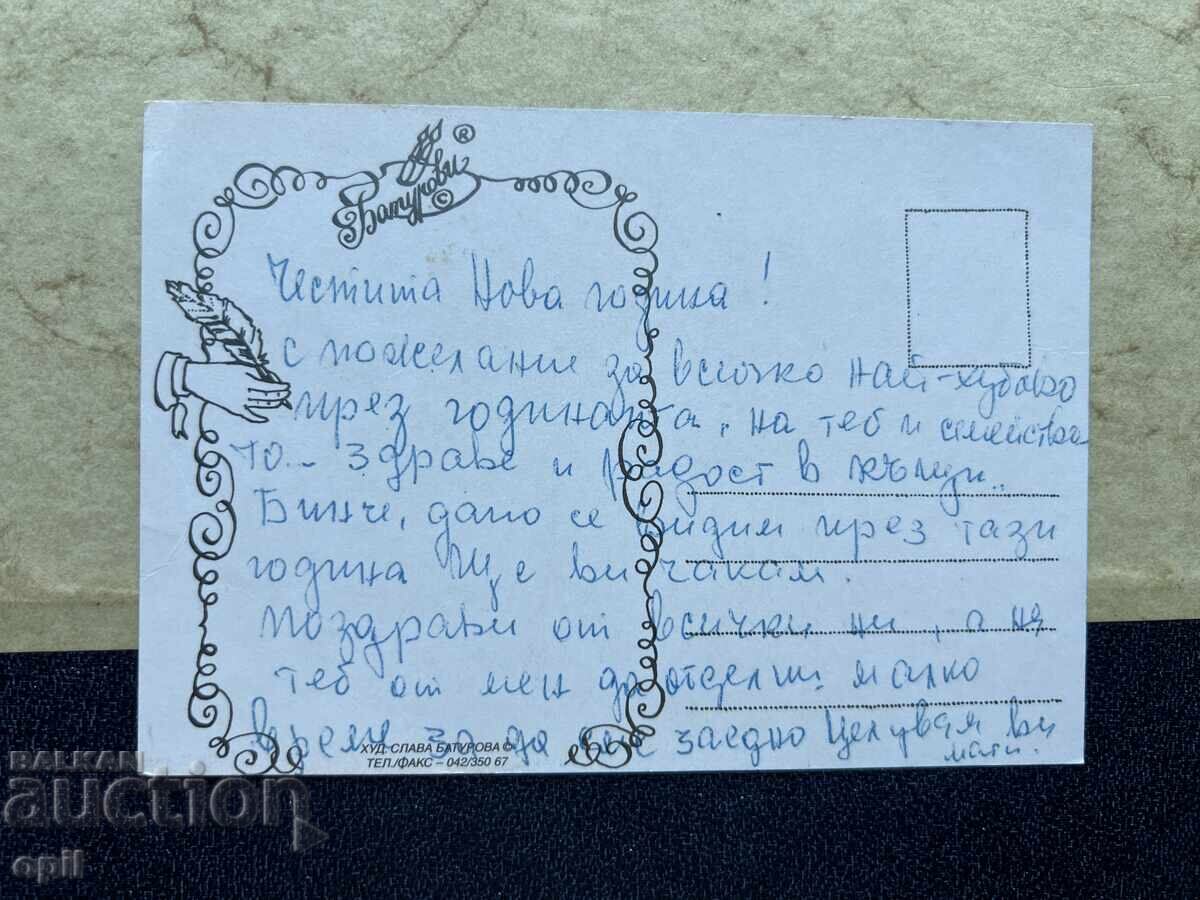 Батурови ® ©
Честита Нова година!
с пожелание за всичко най-хубаво
през годинанта, на теб и семейство
то - здраве и радост в къщи..
Бинче, дано се видим през тази
година Ще ви чакам.
Поздрави от всички ни, а на
теб от мен да отделиш малко
време за да сме заедно Целувам ви
мати.
ХУД. СЛАВА БАТУРОВА ©
ТЕЛ./ФАКС – 042/350 67
BALKAN
auction
opil